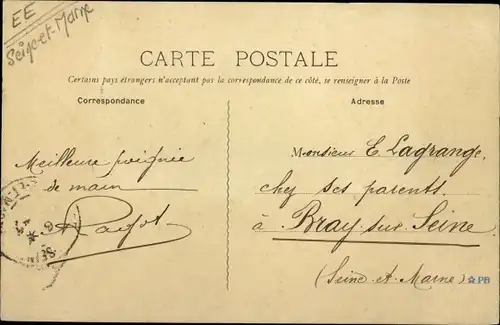 EE
Seine-et-Marne
CARTE POSTALE
Certains pays étrangers n'acceptant pas la correspondance de ce côté, se renseigner à la Poste
Correspondance
Adresse
Meilleure poignée
de main
Monsieur E. Lagrange.
chez ses parents.
à Bray-sur-Seine
(Seine-et-Marne)
PB